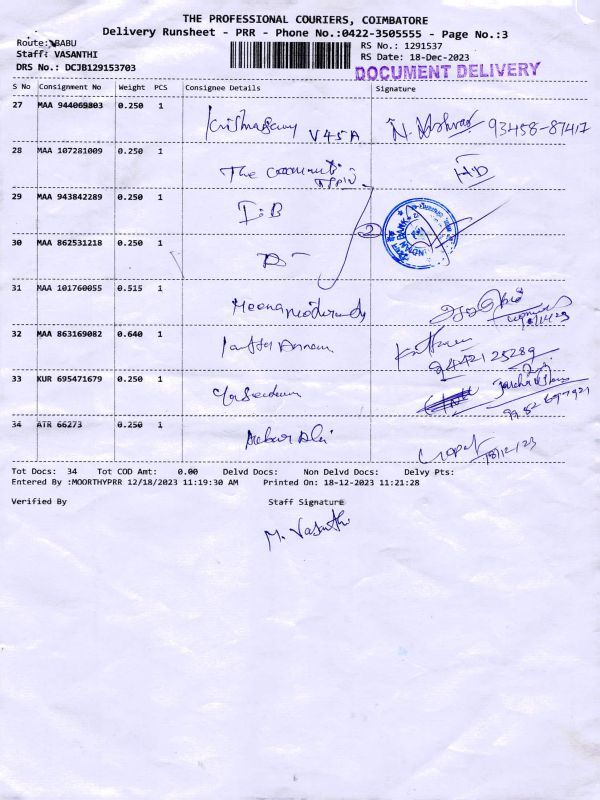 THE PROFESSIONAL COURIERS, COIMBATORE
Delivery Runsheet - PRR - Phone No.:0422-3505555 - Page No.:3
Route: BABU
Staff: VASANTHI
DRS No.: DCJB129153703
RS No.: 1291537
RS Date: 18-Dec-2023
DOCUMENT DELIVERY
S No Consignment No Weight PCS Consignee Details Signature
27 MAA 944069803 0.250 1
V45A 93458-87417
28 MAA 107281009 0.250 1
The H.D
29 MAA 943842289 0.250 1
I.B 2
INDIAN BANK
30 MAA 862531218 0.250 1
31 MAA 101760055 0.515 1
32 MAA 863169082 0.640 1
94421 25289
33 KUR 695471679 0.250 1
34 ATR 66273 0.250 1
18/12/23
Tot Docs: 34 Tot COD Amt: 0.00 Delvd Docs: Non Delvd Docs: Delvy Pts:
Entered By :MOORTHYPRR 12/18/2023 11:19:30 AM Printed On: 18-12-2023 11:21:28
Verified By Staff Signature
M. Vasanthi